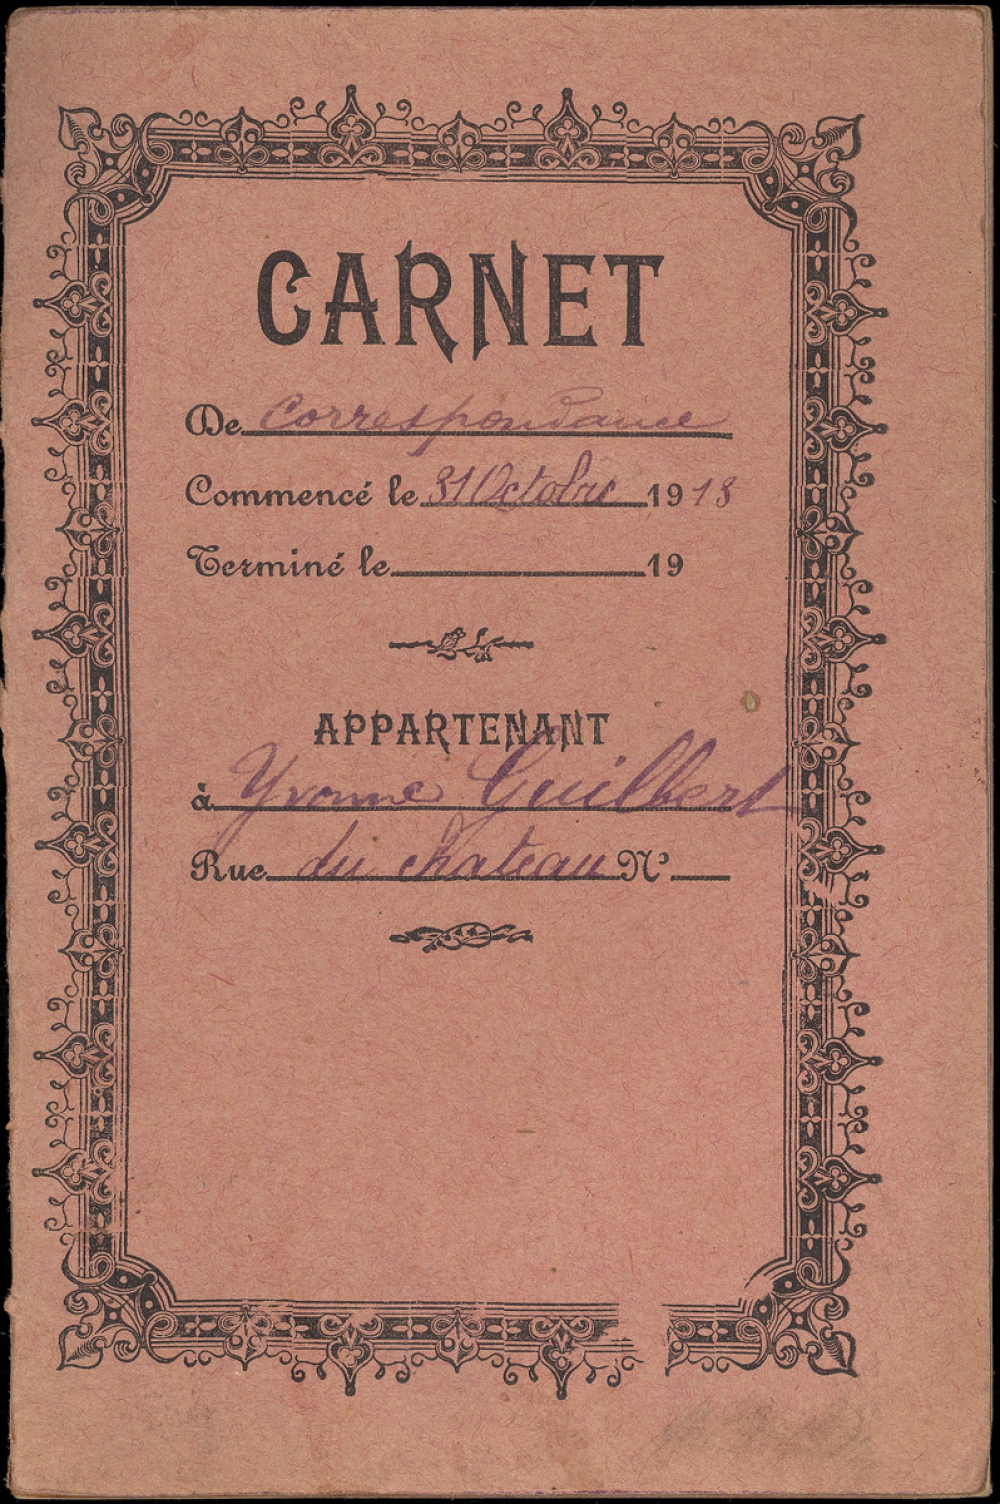 CARNET
De Correspondance
Commencé le 31 Octobre 1918
Terminé le 19
APPARTENANT
à Yvonne Guilbert
Rue du chateau Nº